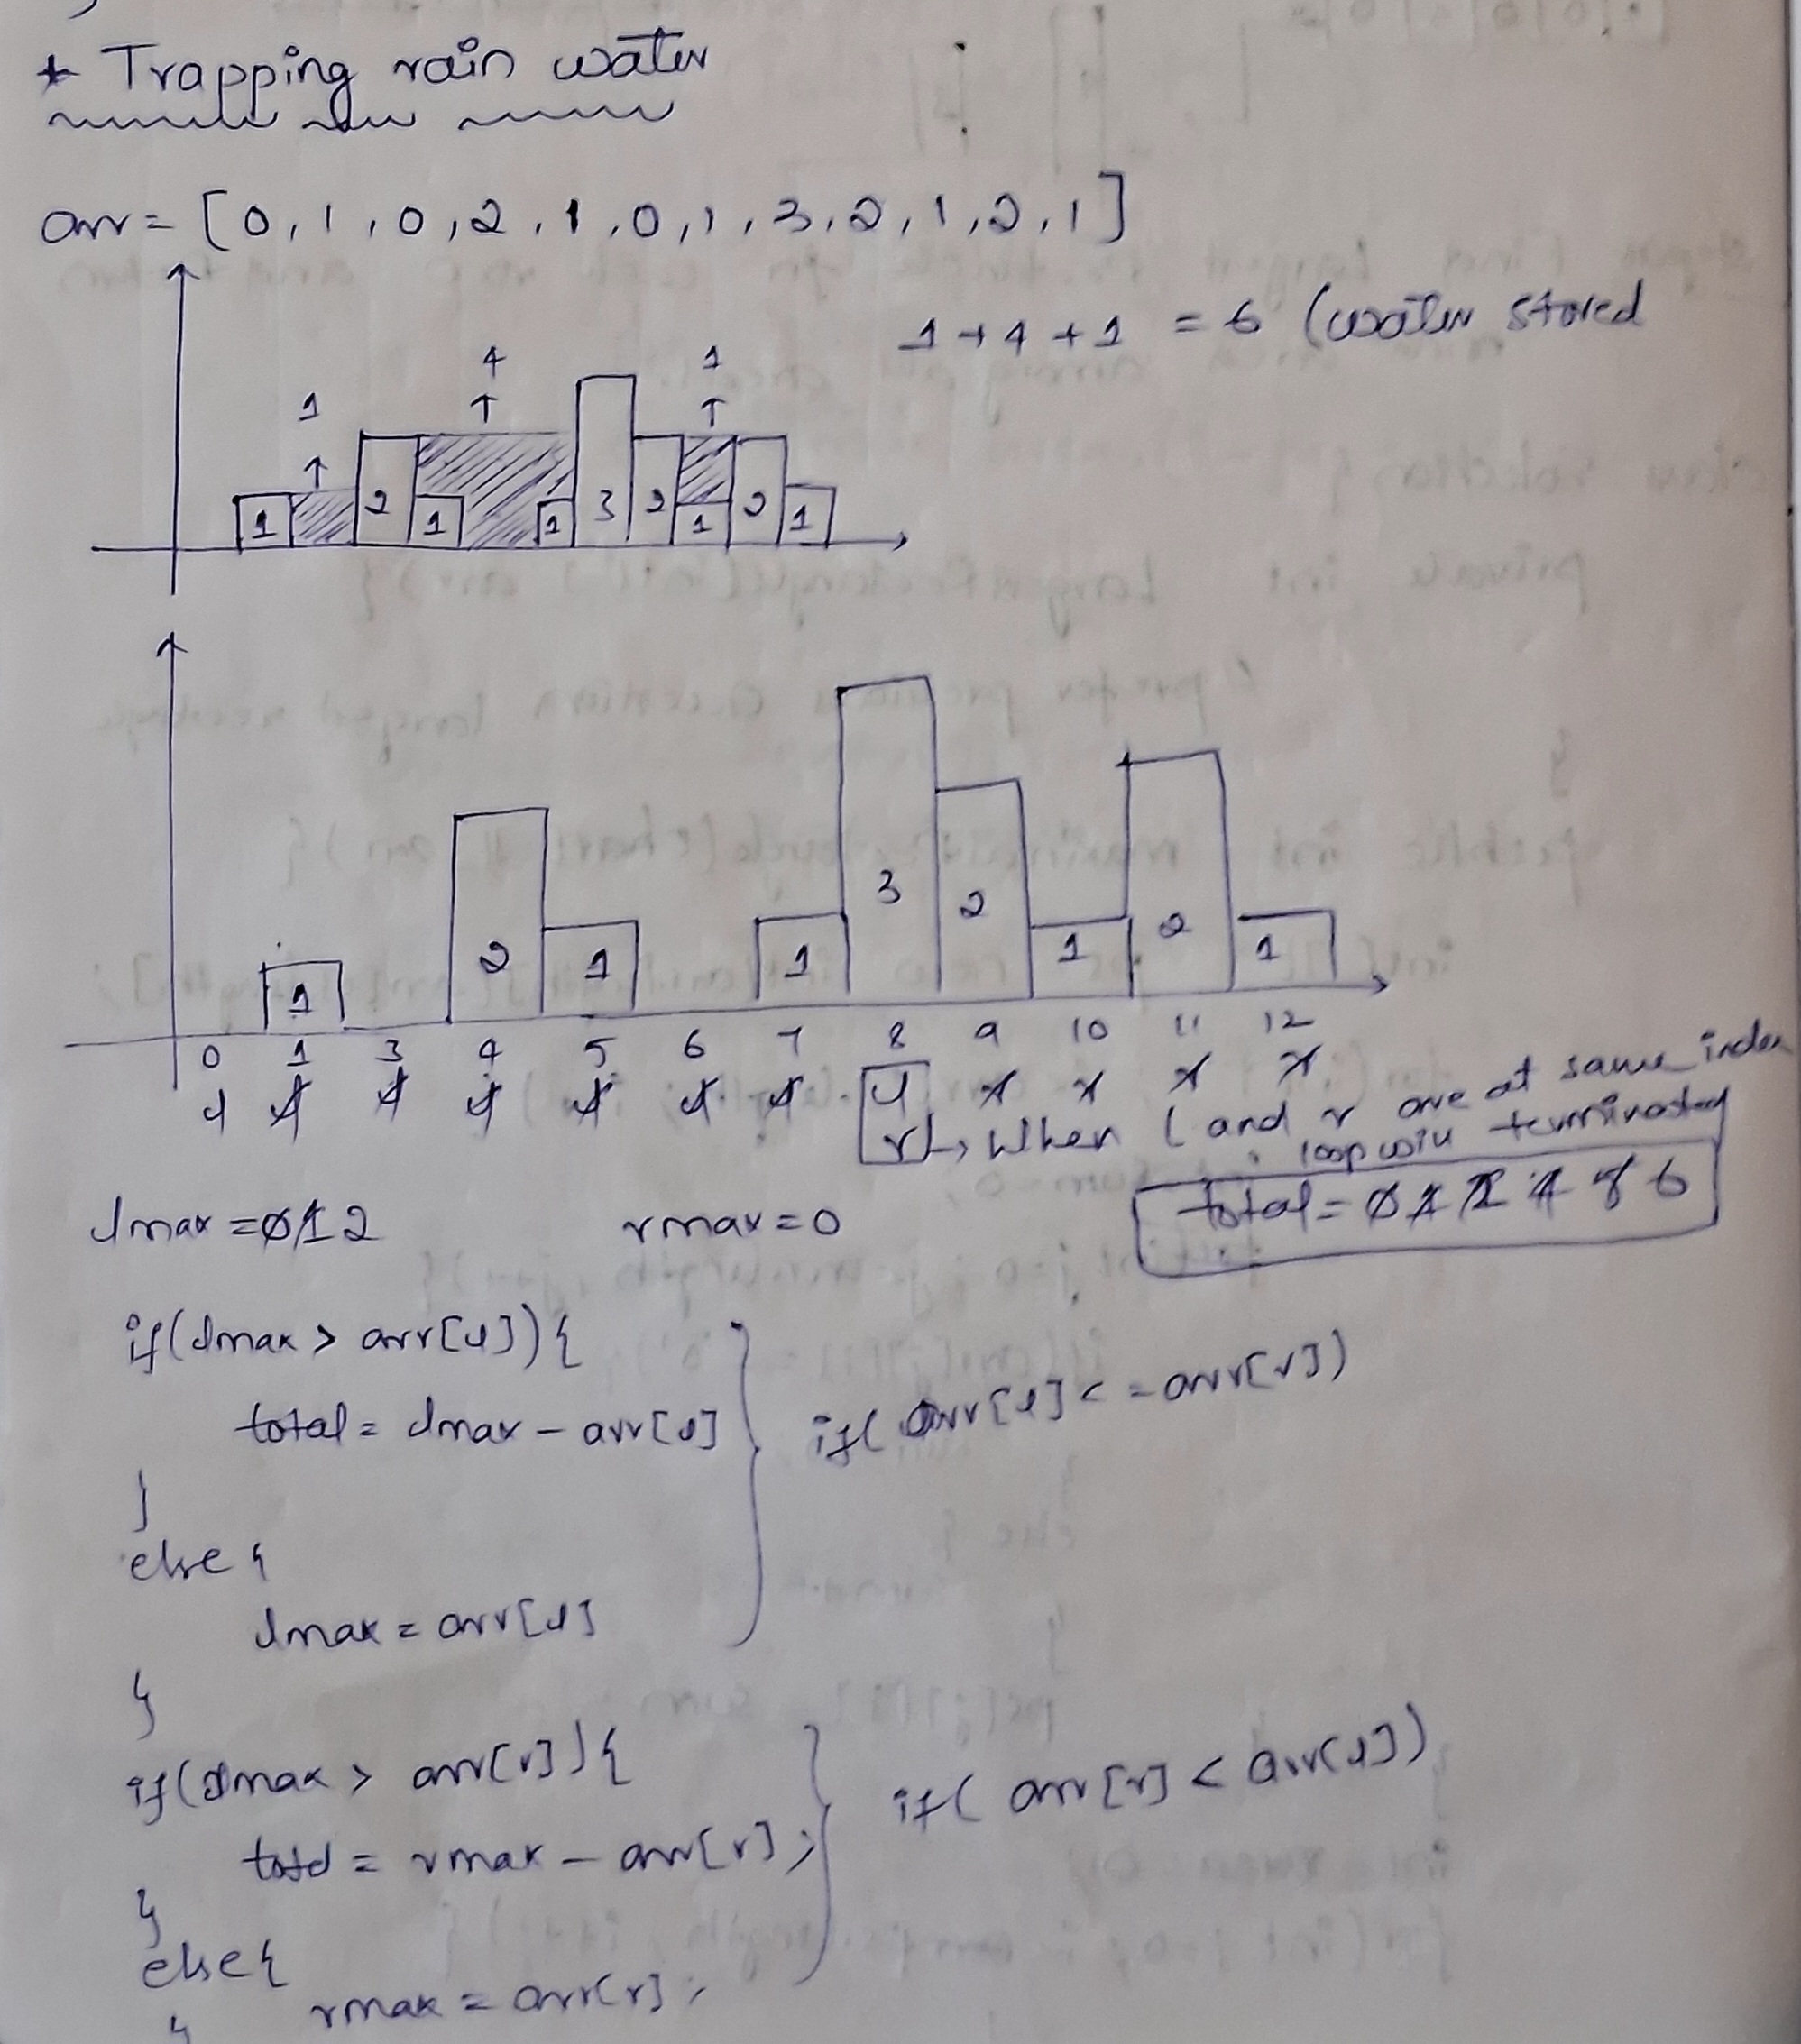 * Trapping rain water
arr = [0, 1, 0, 2, 1, 0, 1, 3, 2, 1, 2, 1]
1 + 4 + 1 = 6 (water stored
1 4 1
1 2 1 1 3 2 1 2 1
1 2 1 1 3 2 1 2 1
0 1 3 4 5 6 7 8 9 10 11 12
l l l l l l l l r r r r
r → When l and r are at same index
loop will terminated
lmax = 0 1 2 rmax = 0 total = 0 1 2 4 5 6
if(lmax > arr[l]){
total = lmax - arr[l]
}
else {
lmax = arr[l]
}
if( arr[l] <= arr[r])
if(rmax > arr[r]){
total = rmax - arr[r];
}
else{
rmax = arr[r];
}
if( arr[r] < arr[l])